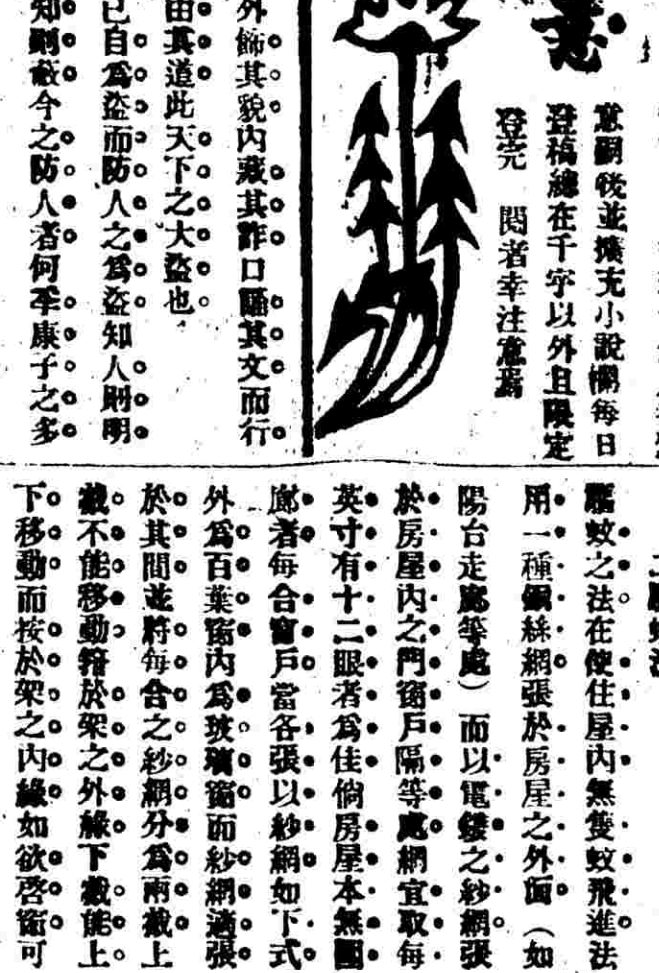 意嗣後並擴充小說欄每日
登稿總在千字以外且限定
登完 閱者幸注意焉
外飾其貌內藏其詐口誦其文而行
由其道此天下之大盜也
已自爲盜而防人之爲盜知人則明
知嗣蔽今之防人者何季康子之多
驅蚊之法在使住屋內無隻蚊飛進法
用一種銅絲網張於房屋之外面（如
陽台走廊等處）而以電鍍之紗網張
於房屋內之門窗戶隔等處網宜取每
英寸有十二眼者爲佳倘房屋本無圍
廊者每合窗戶當各張以紗網如下式
外爲百葉窗內爲玻璃窗而紗網適張
於其間並將每合之紗網分爲兩截上
截不能移動箝於架之外緣下截能上
下移動而按於架之內緣如欲啓窗可